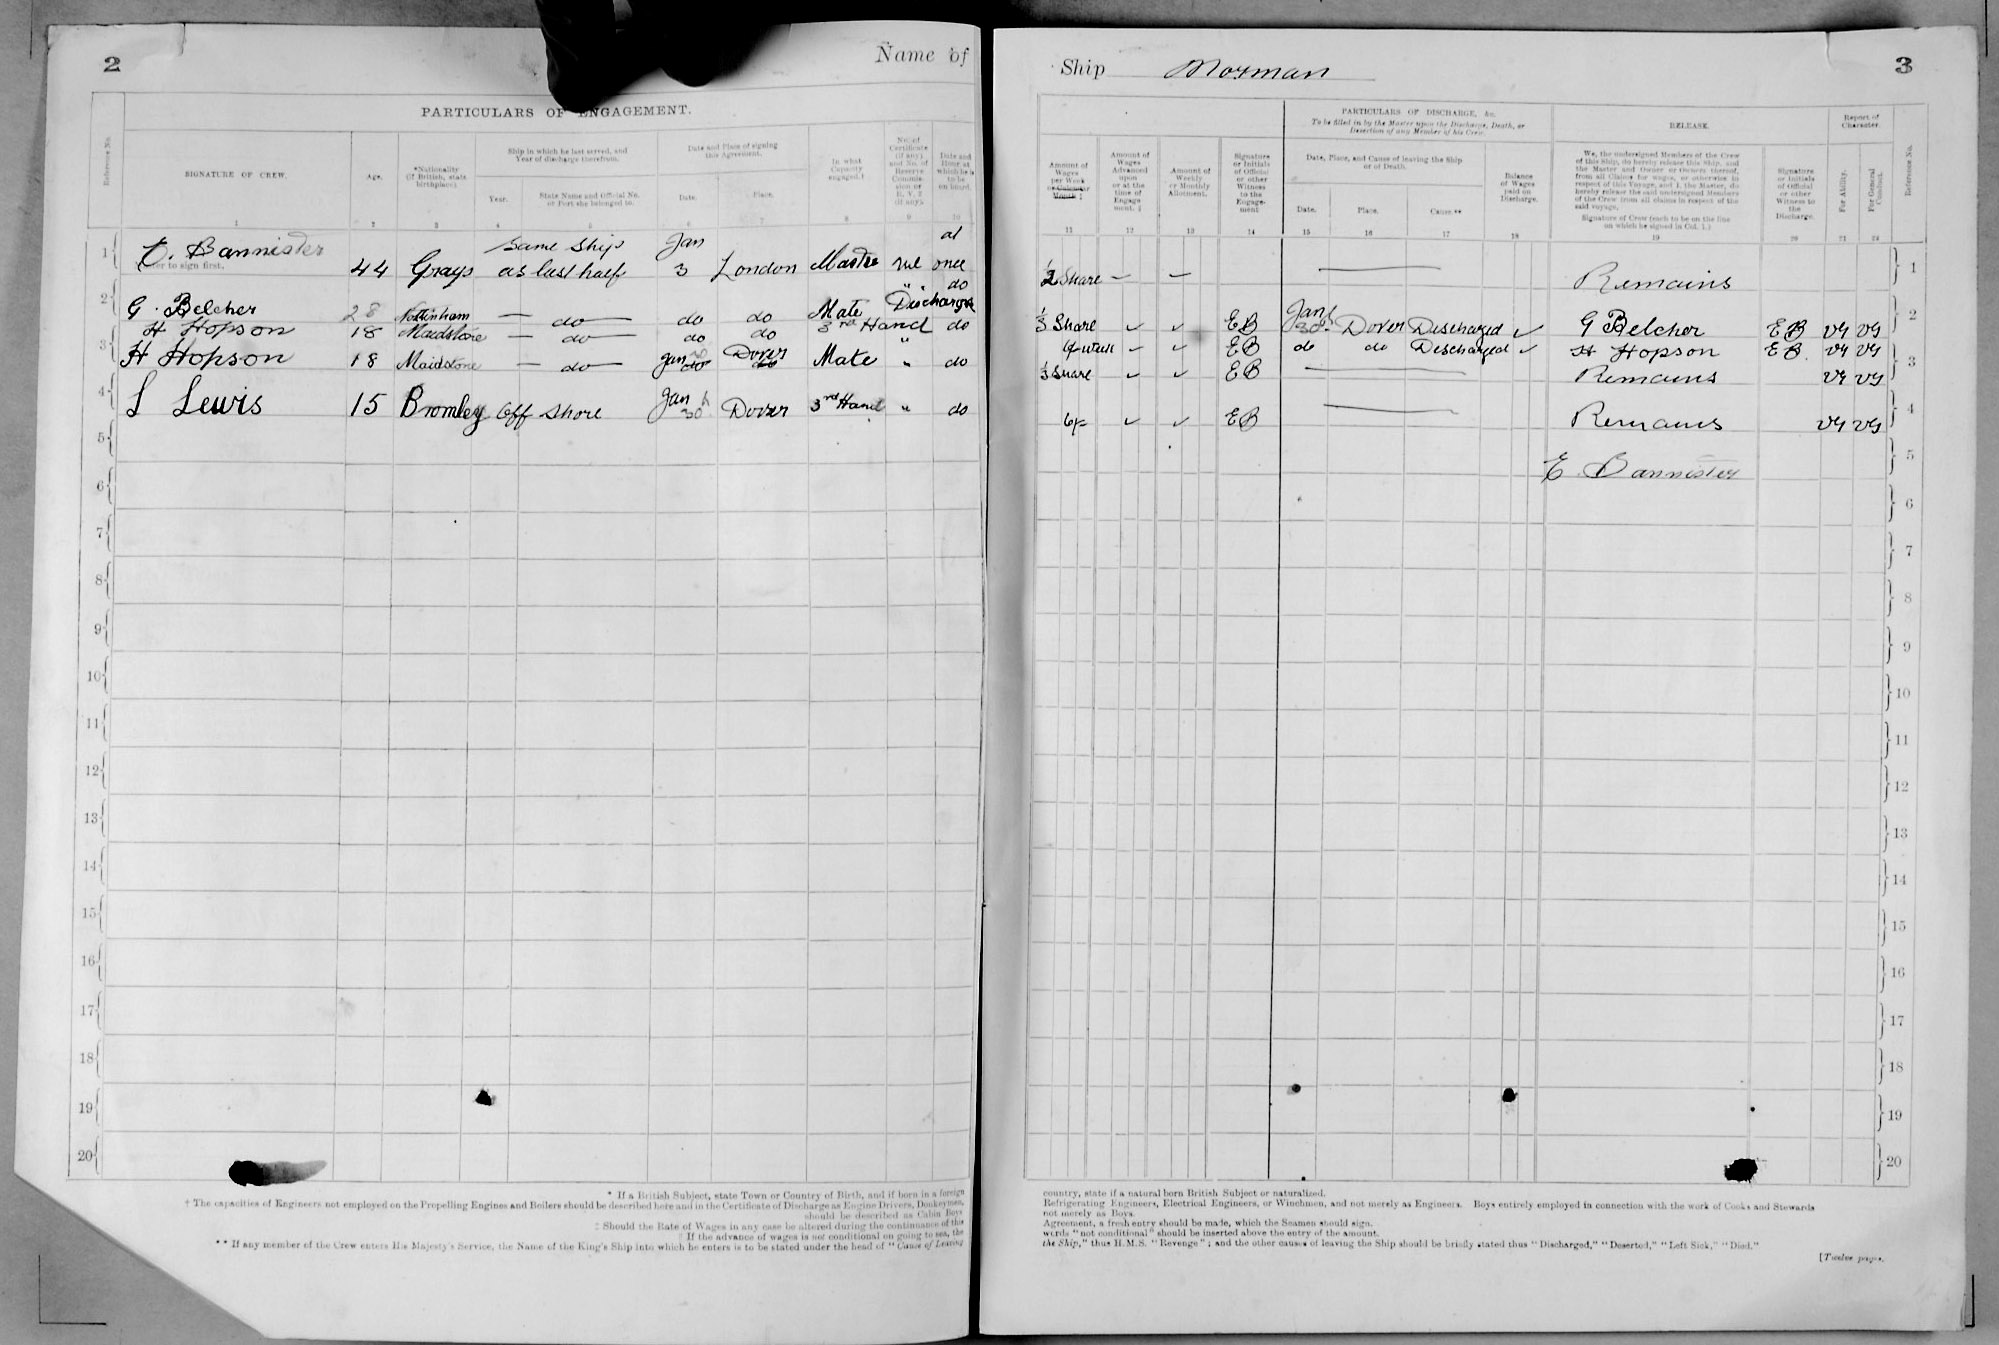 2
Name of
PARTICULARS OF ENGAGEMENT.
Reference No.
SIGNATURE OF CREW.
Age.
*Nationality (if British, state birthplace).
Ship in which he last served, and Year of discharge therefrom.
Year.
State Name and Official No. or Port she belonged to.
Date and Place of signing this Agreement.
Date.
Place.
In what Capacity engaged.†
No. of Certificate (if any), and No. of Reserve Commission or R.V.2 (if any).
Date and Hour at which he is to be on board.
1 2 3 4 5 6 7 8 9 10
1 E. Bannister 44 Grays same ship as last half Jan 3 London Master nil at once
Master to sign first.
2 G. Belcher 28 do do do Mate Discharged do
H Hopson 18 Maidstone do do do 3rd Hand " do
3 H Hopson 18 Maidstone do Jan 30 do Dover do Mate " do
4 L Lewis 15 Bromley Off Shore Jan 30 Dover 3rd Hand " do
5
6
7
8
9
10
11
12
13
14
15
16
17
18
19
20
* If a British Subject, state Town or Country of Birth, and if born in a foreign
† The capacities of Engineers not employed on the Propelling Engines and Boilers should be described here and in the Certificate of Discharge as Engine Drivers, Donkeymen,
should be described as Cabin Boys
‡ Should the Rate of Wages in any case be altered during the continuance of this
|| If the advance of wages is not conditional on going to sea, the
** If any member of the Crew enters His Majesty's Service, the Name of the King's Ship into which he enters is to be stated under the head of "Cause of Leaving
Ship Morman
3
PARTICULARS OF DISCHARGE, &c.
To be filled in by the Master upon the Discharge, Death, or Desertion of any Member of his Crew.
RELEASE.
Report of Character.
Amount of Wages per Week or Calendar Month ‡
Amount of Wages Advanced upon or at the time of Engagement. ‡
Amount of Weekly or Monthly Allotment.
Signature or Initials of Official or other Witness to the Engagement
Date, Place, and Cause of leaving the Ship or of Death.
Date.
Place.
Cause.**
Balance of Wages paid on Discharge.
We, the undersigned Members of the Crew of this Ship, do hereby release this Ship, and the Master and Owner or Owners thereof, from all Claims for wages, or otherwise in respect of this Voyage, and I, the Master, do hereby release the said undersigned Members of the Crew from all claims in respect of the said voyage.
Signature of Crew (each to be on the line on which he signed in Col. 1.)
Signature or Initials of Official or other Witness to the Discharge.
For Ability.
For General Conduct.
Reference No.
11 12 13 14 15 16 17 18 19 20 21 22
½ Share — — Remains 1
⅓ Share EB Jan 30 Dover Discharged G Belcher EB VG VG 2
EB do do Discharged H Hopson EB VG VG
⅓ Share EB Remains VG VG 3
6/- EB Remains VG VG 4
E. Bannister 5
6
7
8
9
10
11
12
13
14
15
16
17
18
19
20
country, state if a natural born British Subject or naturalized.
Refrigerating Engineers, Electrical Engineers, or Winchmen, and not merely as Engineers. Boys entirely employed in connection with the work of Cooks and Stewards
not merely as Boys.
Agreement, a fresh entry should be made, which the Seamen should sign.
words "not conditional" should be inserted above the entry of the amount.
the Ship," thus H.M.S. "Revenge"; and the other causes of leaving the Ship should be briefly stated thus "Discharged," "Deserted," "Left Sick," "Died."
[Twelve pages.